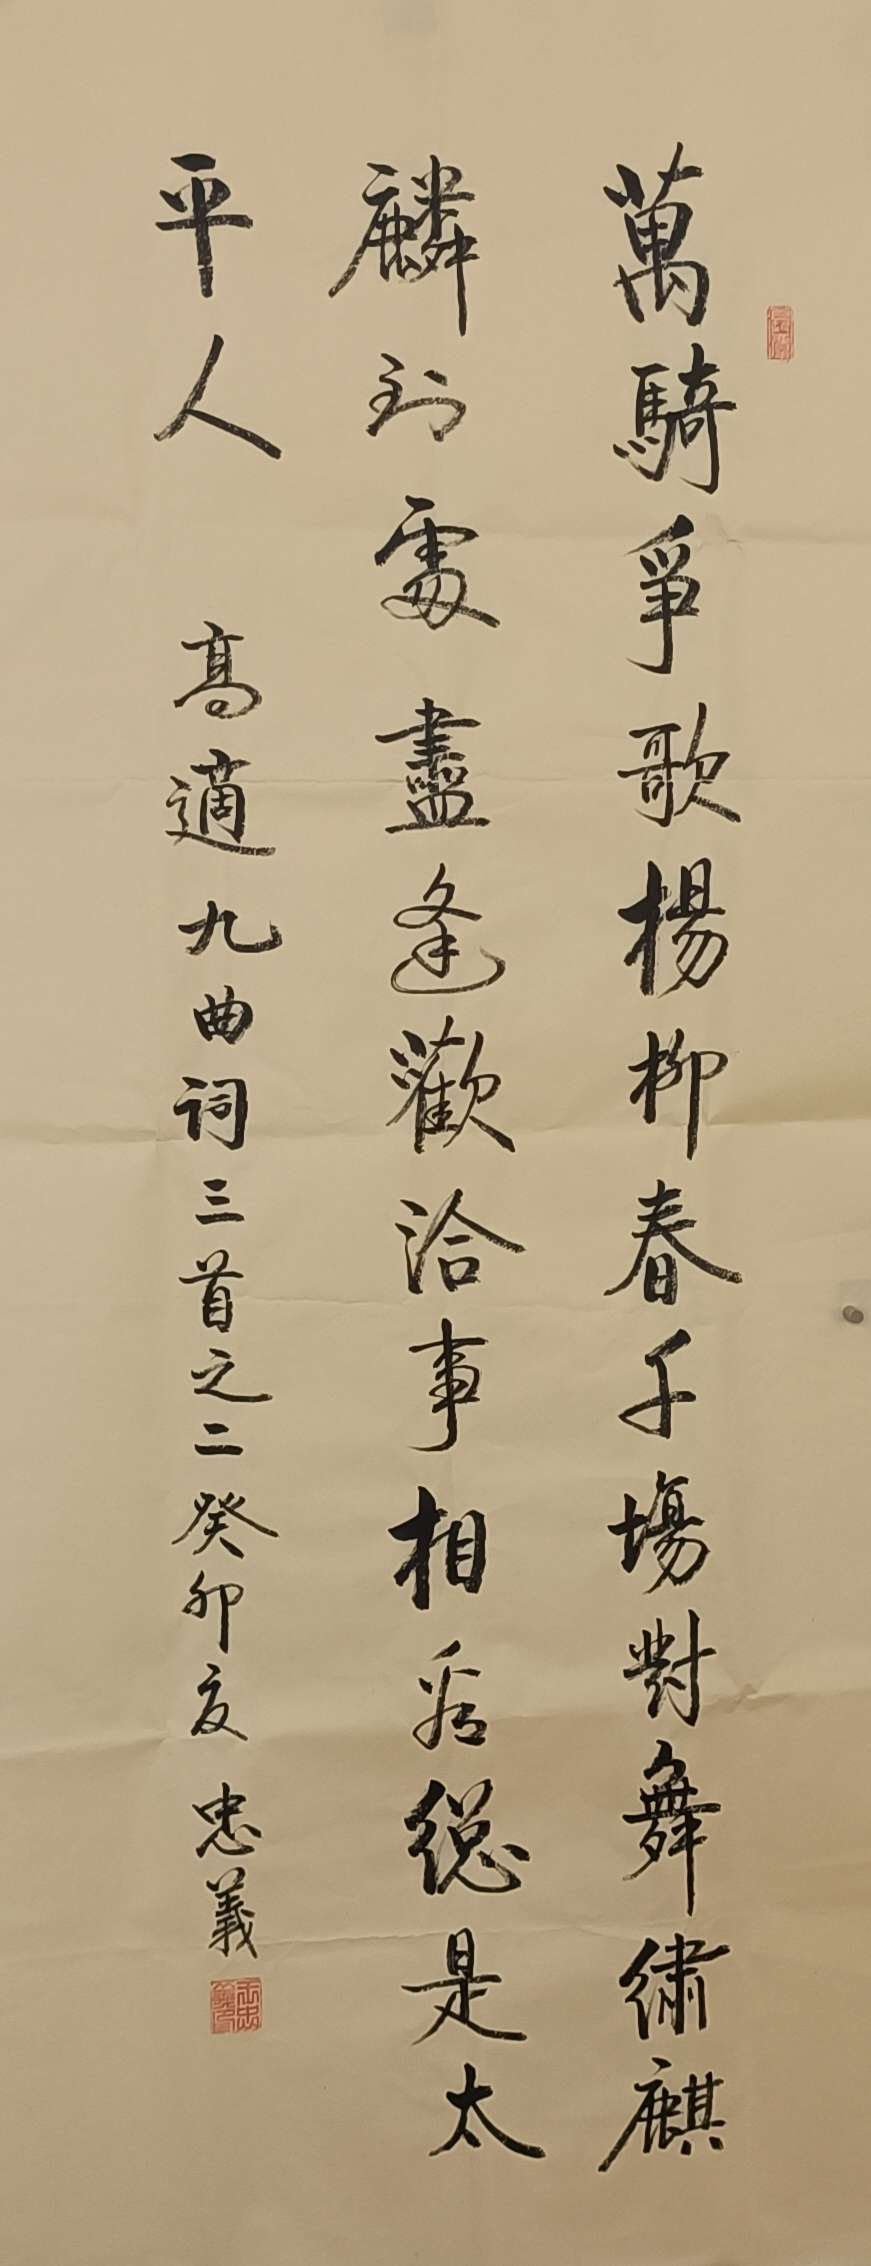 萬騎爭歌楊柳春千場對舞繡麒
麟到處盡逢歡洽事相看總是太
平人 高適九曲词三首之二癸卯夏 忠義